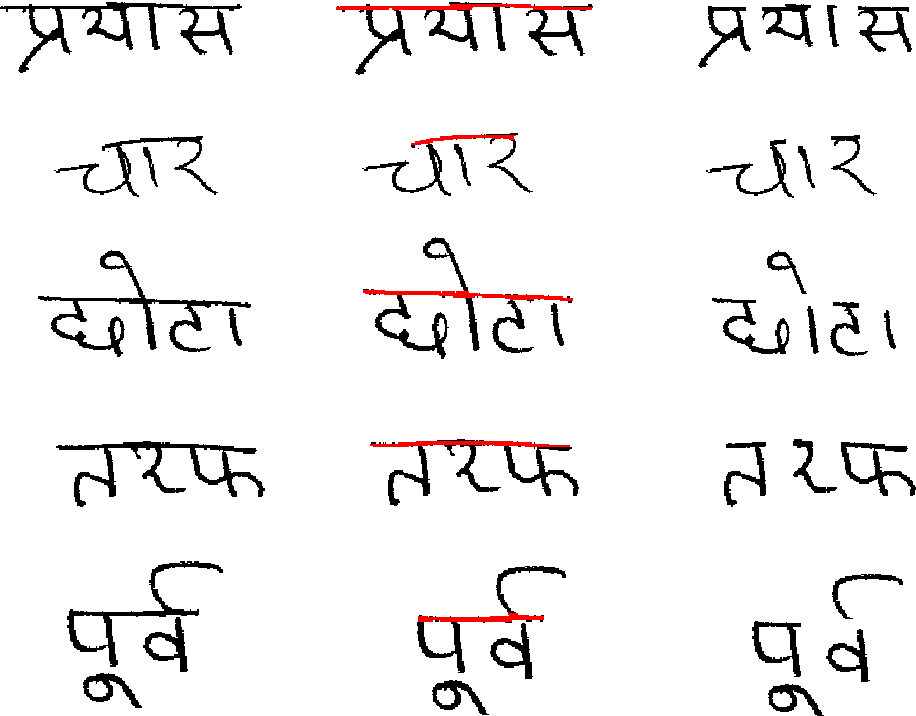 प्रयास प्रयास प्रयास
चार चार चार
छोटा छोटा छोटा
तरफ तरफ तरफ
पूर्व पूर्व पूर्व